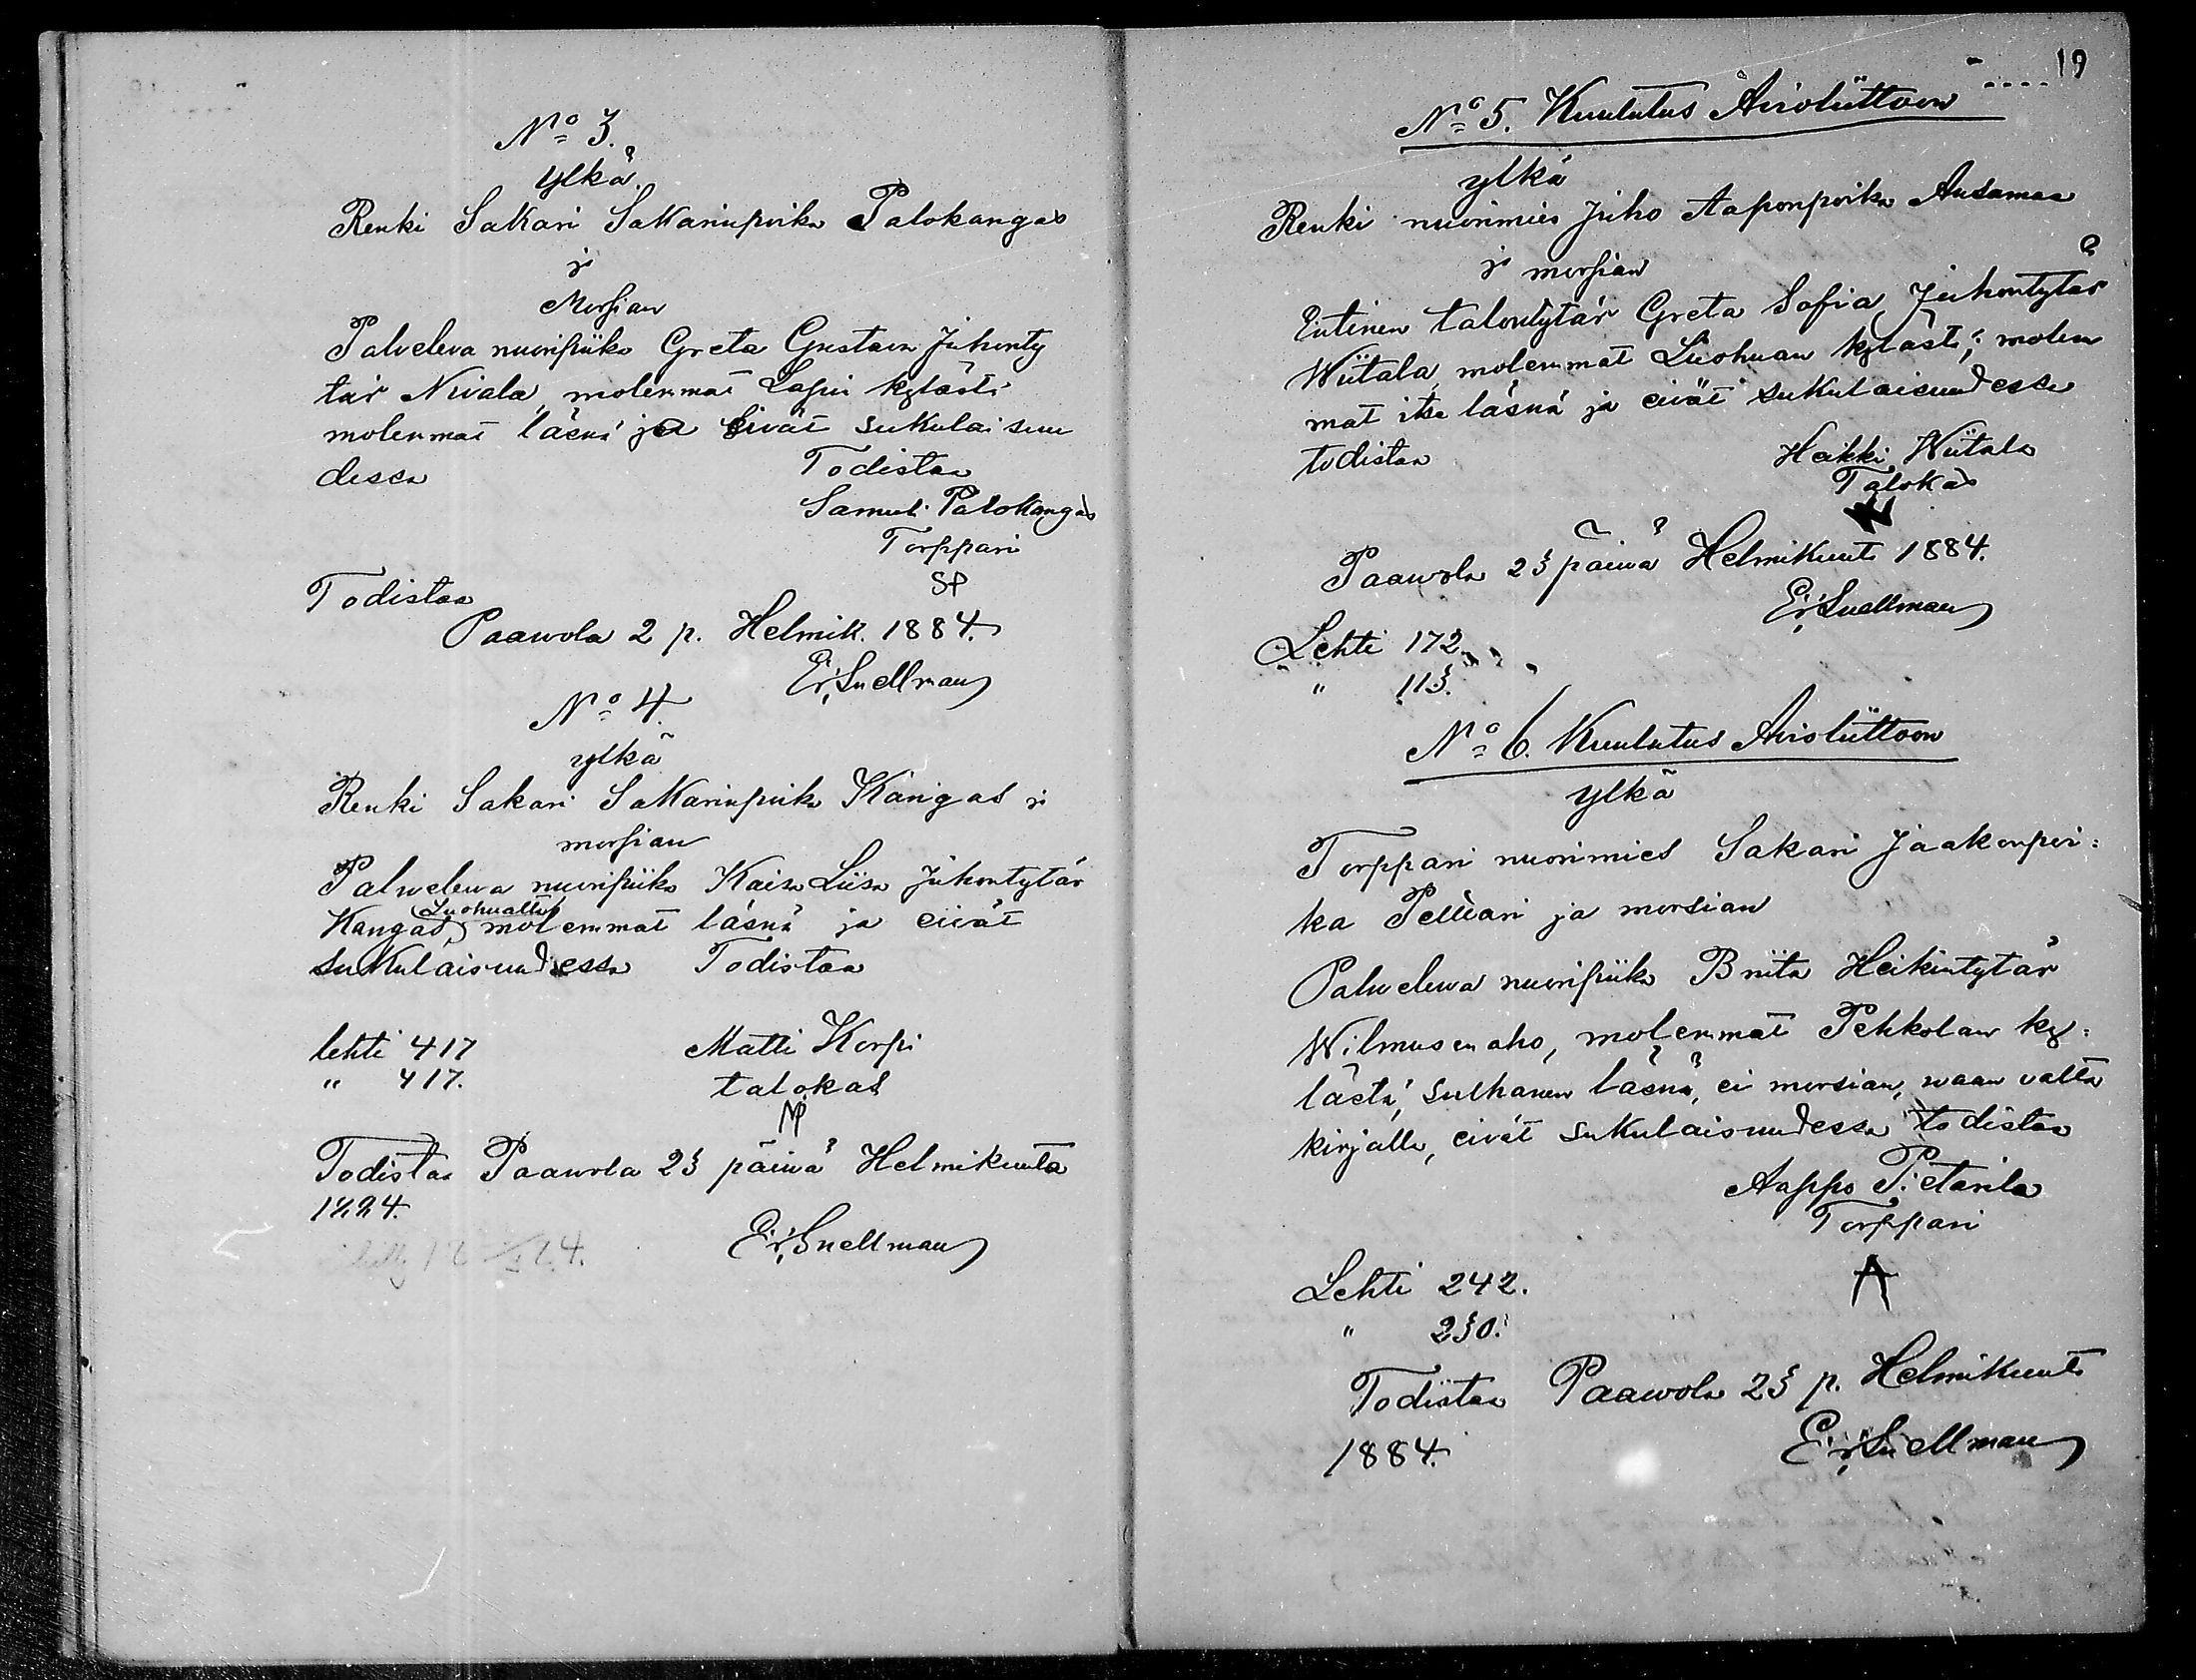 No 3.
ylkä
Renki Sakari Sakarinpoika Palokangas
ja
Morsian
Palveleva nuoripiika Greta Gustava Juhonty
tär Nivala, molemmat Lapin kylästä
molemmat läsnä ja eivät sukulaisuu
dessa Todistaa
Samuli Palokangas
Torppari
SP
Todistaa
Paawola 2 p. Helmik. 1884.
Er. Snellman
No 4.
ylkä
Renki Sakari Sakarinpoika Kangas ja
morsian
Palweleva nuoripiika Kaisa Liisa Juhontytär
Luohualta
Kangas, molemmat läsnä ja eivät
sukulaisuudessa Todistaa
lehti 417 Matti Korpi
" 417. talokas
Todistaa Paawola 25 päivä Helmikuuta
1884.
Er. Snellman
19
No 5. Kuulutus Avioliittoon
ylkä
Renki nuorimies Juho Aaponpoika Ansamaa
ja morsian
Entinen talontytär Greta Sofia Juhontytär
Wiitala, molemmat Luohuan kylästä; molem
mat itse läsnä ja eivät sukulaisuudessa
todistaa Heikki Wiitala
Talokas
Paawola 25 päiwä Helmikuuta 1884.
Er. Snellman
Lehti 172.
" 115.
No 6. Kuulutus Avioliittoon
ylkä
Torppari nuorimies Sakari Jaakonpoi=
ka Pelttari ja morsian
Palweleva nuoripiika Briita Heikintytär
Wilmusenaho, molemmat Pehkolan ky=
lästä, sulhanen läsnä, ei morsian, waan valta
kirjalla, eivät sukulaisuudessa todistaa
Aappo Pietarila
Torppari
A
Lehti 242.
" 250.
Todistaa Paawola 25 p. Helmikuuta
1884. Er. Snellman